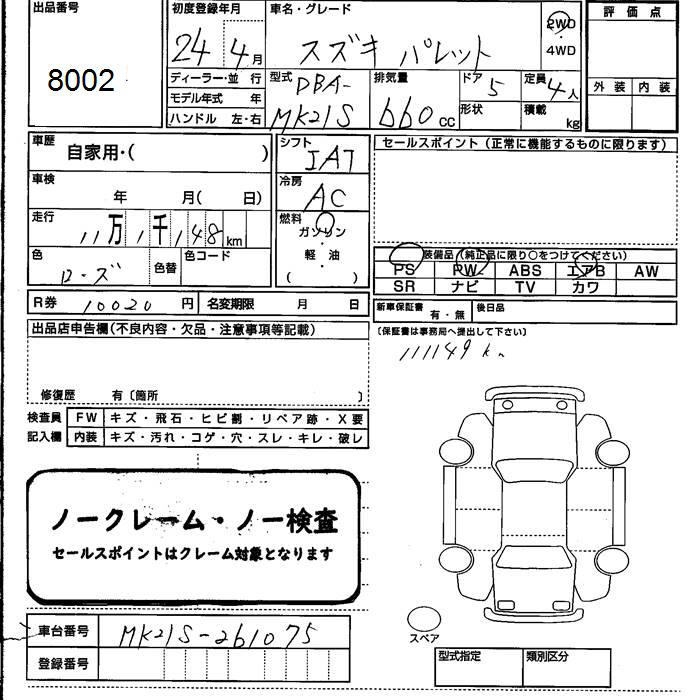 出品番号 初度登録年月 車名・グレード 2WD 評価点
8002 24年 4月 スズキ パレット ・4WD
ディーラー・並行 型式 DBA- 排気量 ドア 5 定員 4人 外装 内装
モデル年式 年
ハンドル 左・右 MK21S 660cc 形状 積載 kg
車歴 自家用・( ) シフト IAT セールスポイント(正常に機能するものに限ります)
車検 年 月( 日) 冷房 AC
走行 11万1千148km 燃料 ガソリン・軽油・( )
色 ローズ 色替 色コード 装備品(純正品に限り○をつけてください)
PS PW ABS エアB AW
SR ナビ TV カワ
R券 10020円 名変期限 月 日 新車保証書 有・無 後日品
出品店申告欄(不良内容・欠品・注意事項等記載) (保証書は事務局へ提出して下さい)
111149km
修復歴 有〔箇所 〕
検査員 FW キズ・飛石・ヒビ割・リペア跡・X要
記入欄 内装 キズ・汚れ・コゲ・穴・スレ・キレ・破レ
ノークレーム・ノー検査
セールスポイントはクレーム対象となります
車台番号 MK21S-261075 スペア
登録番号 型式指定 類別区分